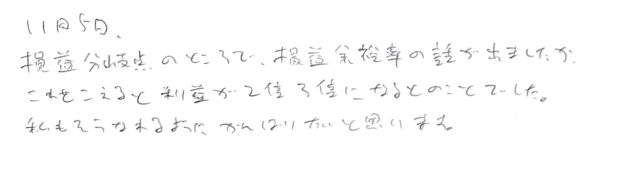 11月5日、
損益分岐点のところで、損益余裕率の話が出ましたが、
これをこえると利益が2倍3倍になるとのことでした。
私もそうなれるように がんばりたいと思います。